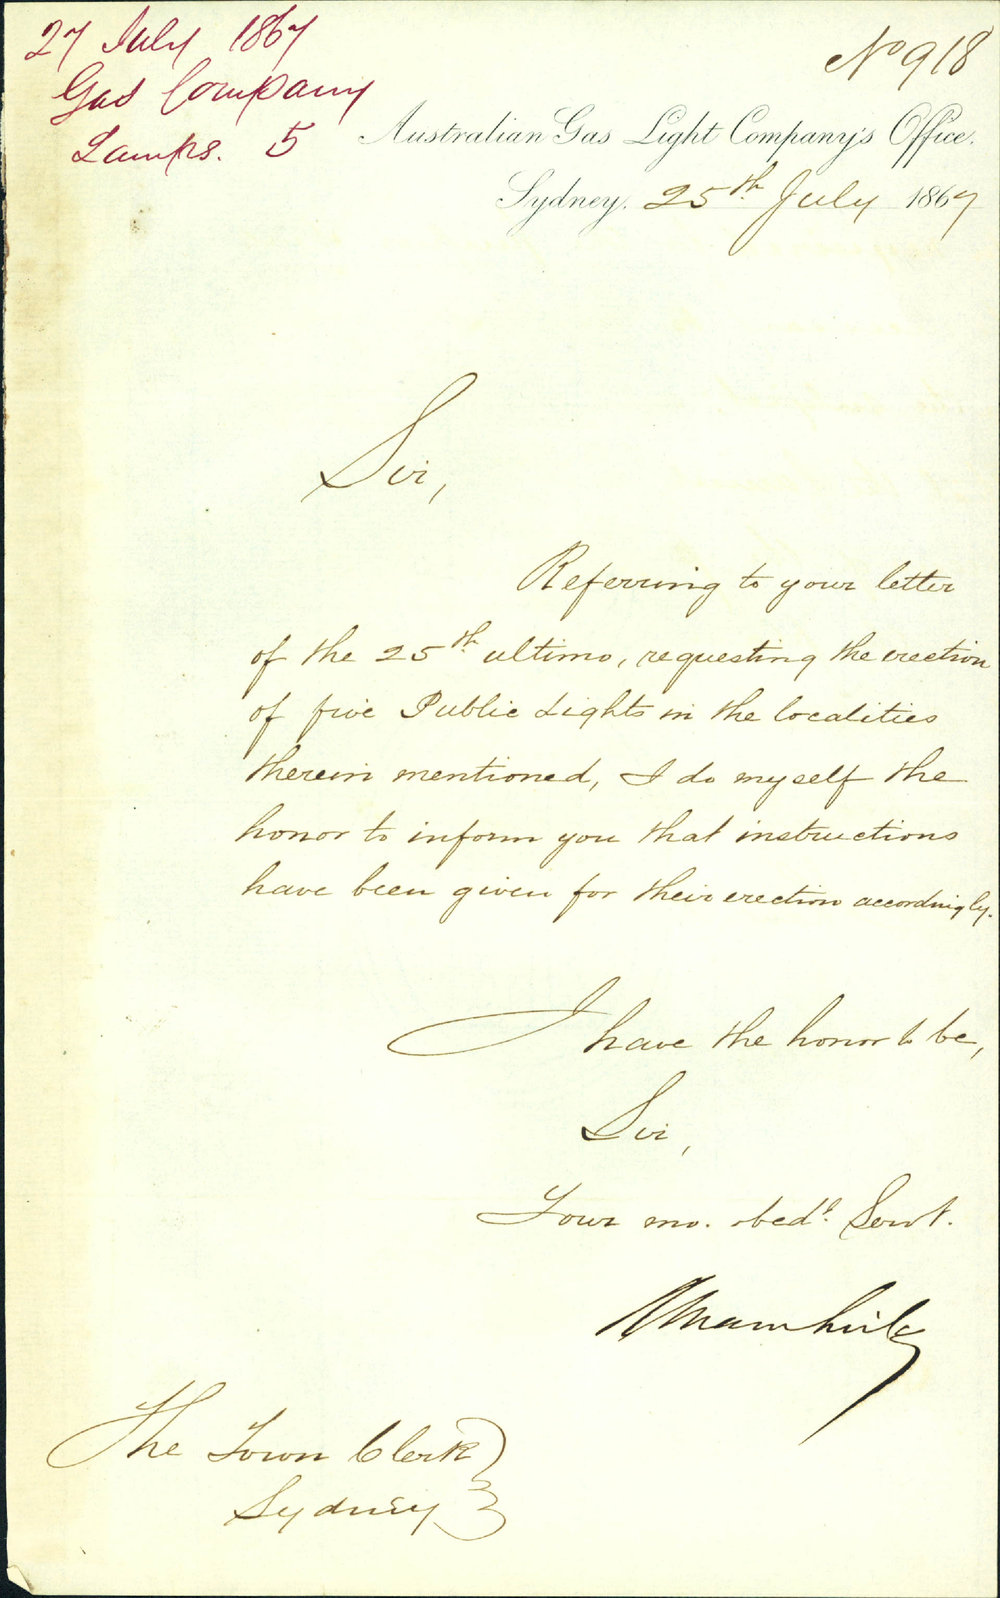 27 July 1867
Gas Company
Lamps. 5
No 918
Australian Gas Light Company's Office.
Sydney. 25th July 1867
Sir,
Referring to your letter
of the 25th ultimo, requesting the erection
of five Public Lights in the localities
therein mentioned, I do myself the
honor to inform you that instructions
have been given for their erection accordingly.
I have the honor to be,
Sir,
Your mo. obedt. Servt.
The Town Clerk
Sydney